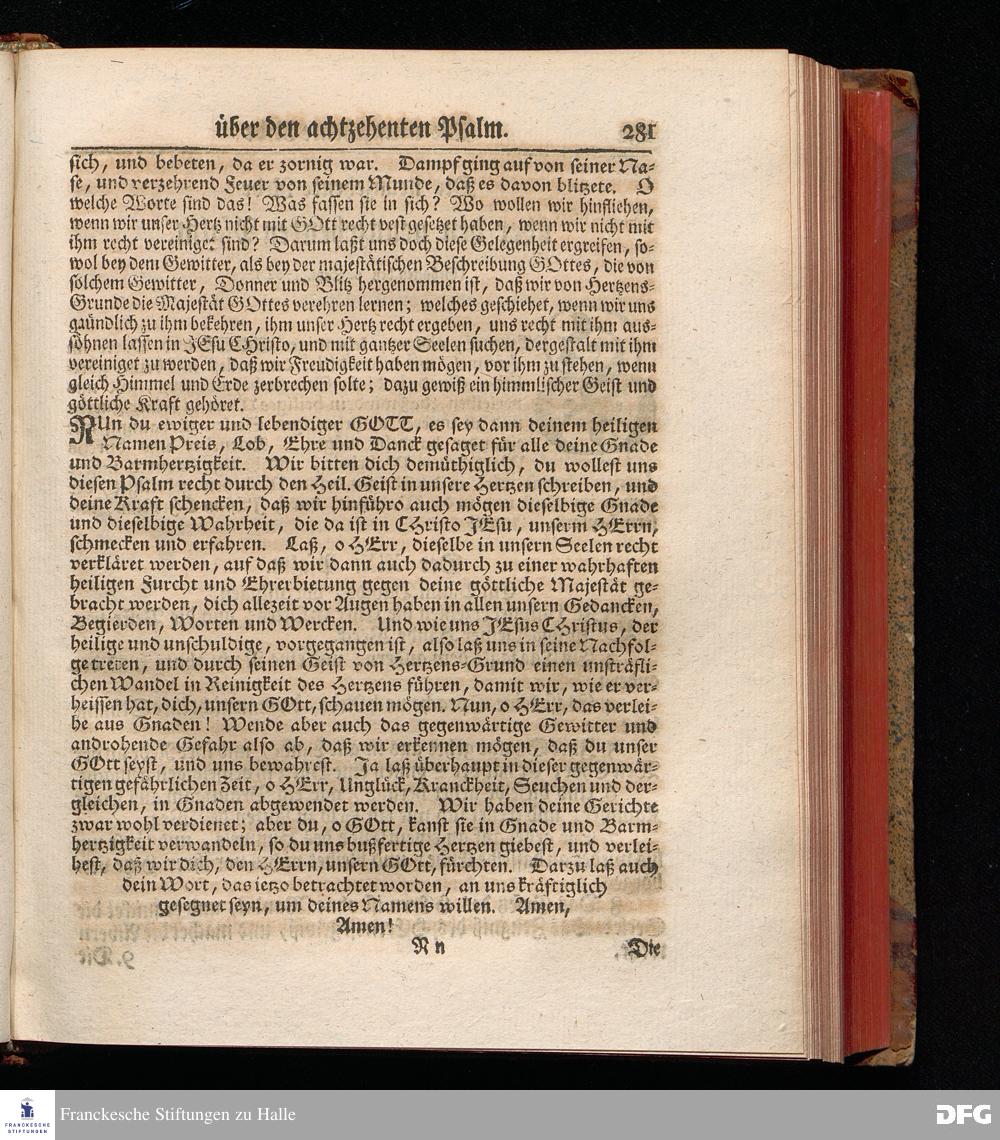 über den achtzehenten Psalm. 281
sich, und bebeten, da er zornig war. Dampf ging auf von seiner Na-
se, und verzehrend Feuer von seinem Munde, daß es davon blitzete. O
welche Worte sind das! Was fassen sie in sich? Wo wollen wir hinfliehen,
wenn wir unser Hertz nicht mit GOtt recht vest gesetzet haben, wenn wir nicht mit
ihm recht vereiniget sind? Darum laßt uns doch diese Gelegenheit ergreifen, so-
wol bey dem Gewitter, als bey der majestätischen Beschreibung GOttes, die von
solchem Gewitter, Donner und Blitz hergenommen ist, daß wir von Hertzens-
Grunde die Majestät GOttes verehren lernen; welches geschiehet, wenn wir uns
gründlich zu ihm bekehren, ihm unser Hertz recht ergeben, uns recht mit ihm aus-
söhnen lassen in JEsu CHristo, und mit gantzer Seelen suchen, dergestalt mit ihm
vereiniget zu werden, daß wir Freudigkeit haben mögen, vor ihm zu stehen, wenn
gleich Himmel und Erde zerbrechen solte; dazu gewiß ein himmlischer Geist und
göttliche Kraft gehöret.
NUn du ewiger und lebendiger GOTT, es sey dann deinem heiligen
Namen Preis, Lob, Ehre und Danck gesaget für alle deine Gnade
und Barmhertzigkeit. Wir bitten dich demüthiglich, du wollest uns
diesen Psalm recht durch den Heil. Geist in unsere Hertzen schreiben, und
deine Kraft schencken, daß wir hinführo auch mögen dieselbige Gnade
und dieselbige Wahrheit, die da ist in CHristo JEsu, unserm HErrn,
schmecken und erfahren. Laß, o HErr, dieselbe in unsern Seelen recht
verkläret werden, auf daß wir dann auch dadurch zu einer wahrhaften
heiligen Furcht und Ehrerbietung gegen deine göttliche Majestät ge-
bracht werden, dich allezeit vor Augen haben in allen unsern Gedancken,
Begierden, Worten und Wercken. Und wie uns JEsus CHristus, der
heilige und unschuldige, vorgegangen ist, also laß uns in seine Nachfol-
ge treten, und durch seinen Geist von Hertzens-Grund einen unsträfli-
chen Wandel in Reinigkeit des Hertzens führen, damit wir, wie er ver-
heissen hat, dich, unsern GOtt, schauen mögen. Nun, o HErr, das verlei-
he aus Gnaden! Wende aber auch das gegenwärtige Gewitter und
androhende Gefahr also ab, daß wir erkennen mögen, daß du unser
GOtt seyst, und uns bewahrest. Ja laß überhaupt in dieser gegenwär-
tigen gefährlichen Zeit, o HErr, Unglück, Kranckheit, Seuchen und der-
gleichen, in Gnaden abgewendet werden. Wir haben deine Gerichte
zwar wohl verdienet; aber du, o GOtt, kanst sie in Gnade und Barm-
hertzigkeit verwandeln, so du uns bußfertige Hertzen giebest, und verlei-
hest, daß wir dich, den HErrn, unsern GOtt, fürchten. Darzu laß auch
dein Wort, das ietzo betrachtet worden, an uns kräftiglich
gesegnet seyn, um deines Namens willen. Amen,
Amen!
N n Die
FRANCKESCHE
STIFTUNGEN
Franckesche Stiftungen zu Halle
DFG